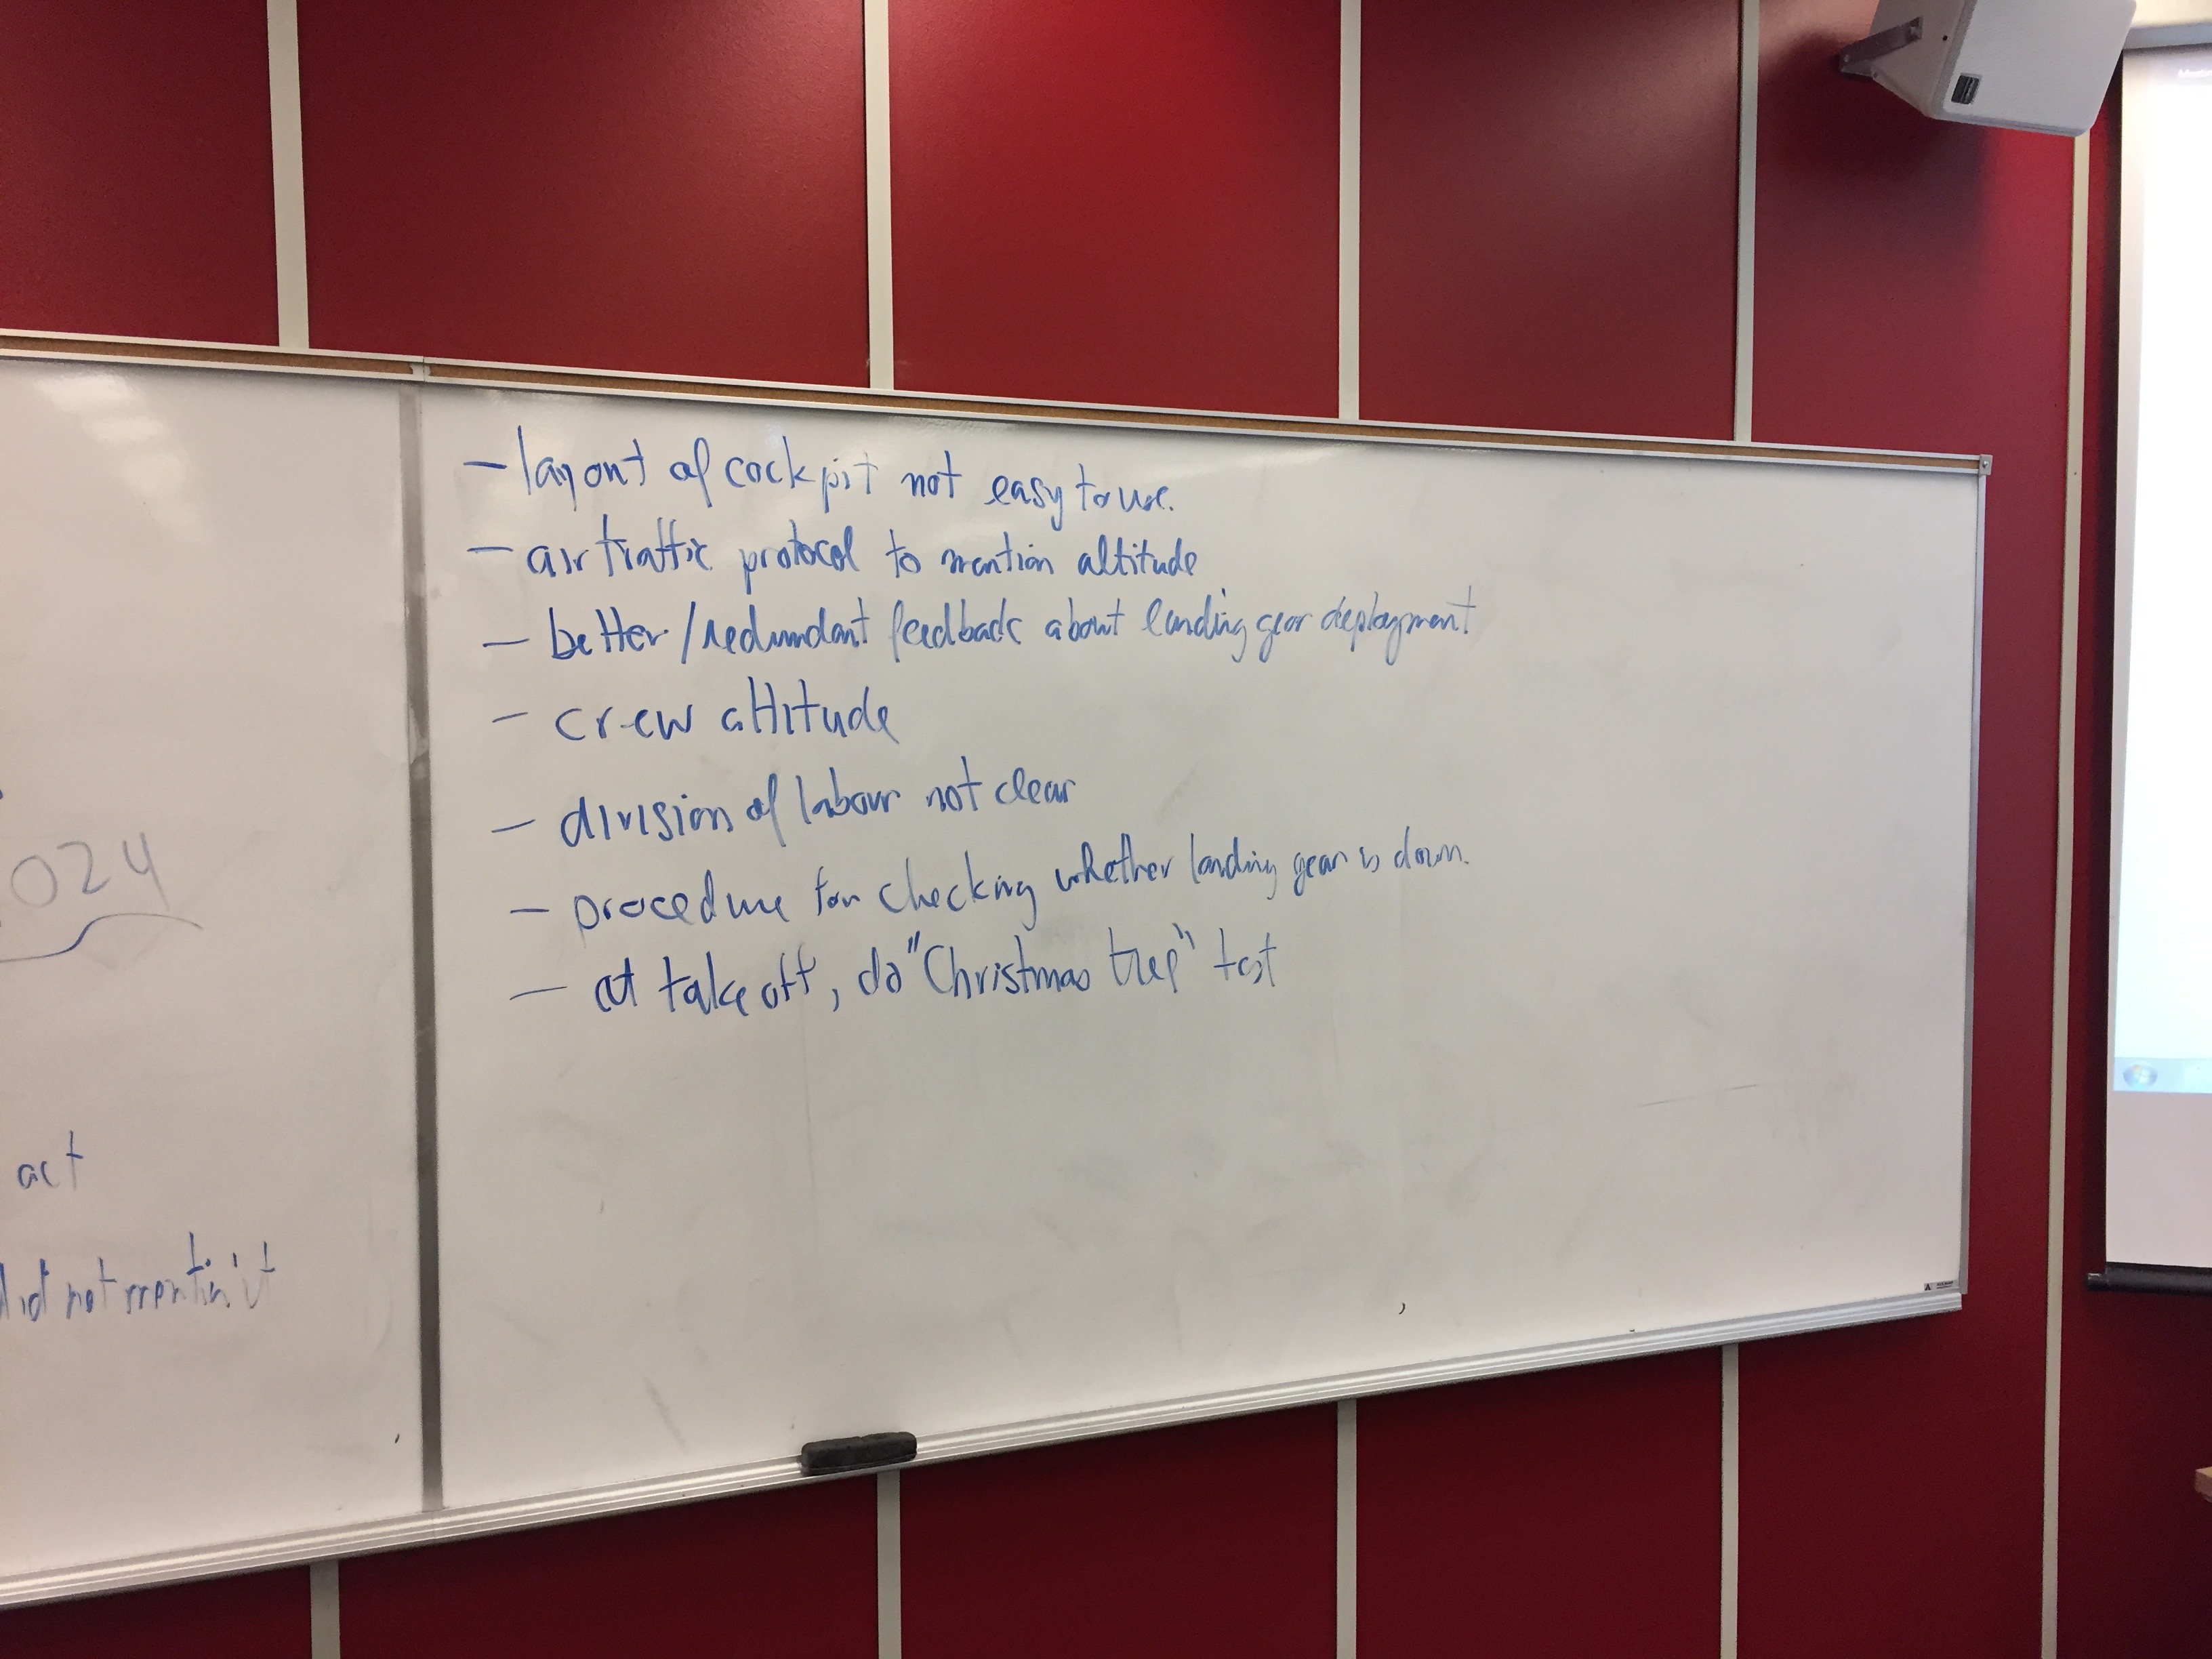 - layout of cockpit not easy to use.
- air traffic protocol to mention altitude
- better/redundant feedback about landing gear deployment
- crew attitude
- division of labour not clear
- procedure for checking whether landing gear is down.
- at take off, do "Christmas tree" test
024
act
did not mention it